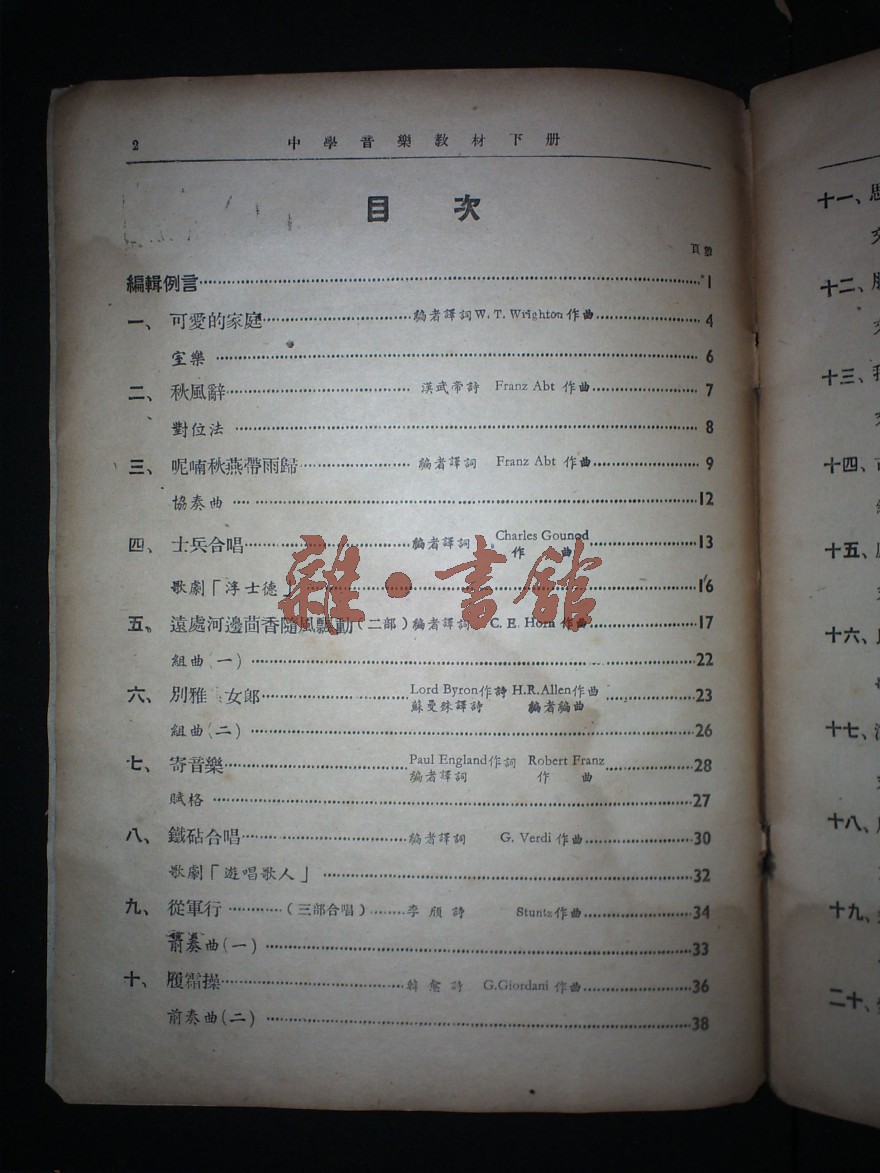 2 中學音樂教材下册
目次
頁數
編輯例言 1
一、 可愛的家庭 編者譯詞 W. T. Wrighton 作曲 4
室樂 6
二、 秋風辭 漢武帝詩 Franz Abt 作曲 7
對位法 8
三、 呢喃秋燕帶雨歸 編者譯詞 Franz Abt 作曲 9
協奏曲 12
四、 士兵合唱 編者譯詞 Charles Gounod 作曲 13
歌劇「浮士德」 16
五、 遠處河邊茴香隨風飄動(二部) 編者譯詞 C. E. Horn 作曲 17
組曲(一) 22
六、 別雅 女郎 Lord Byron作詩 H.R.Allen作曲 23
蘇曼殊譯詩 編者編曲
組曲(二) 26
七、 寄音樂 Paul England作詞 Robert Franz 28
編者譯詞 作曲
賦格 27
八、 鐵砧合唱 編者譯詞 G. Verdi 作曲 30
歌劇「遊唱歌人」 32
九、 從軍行 (三部合唱) 李頎詩 Stuntz作曲 34
前奏曲(一) 33
十、 履霜操 韓愈詩 G.Giordani 作曲 36
前奏曲(二) 38
十一、思
十二、
十三、我
十四、
十五、
十六、
十七、
十八、
十九、
二十、
雜·書館